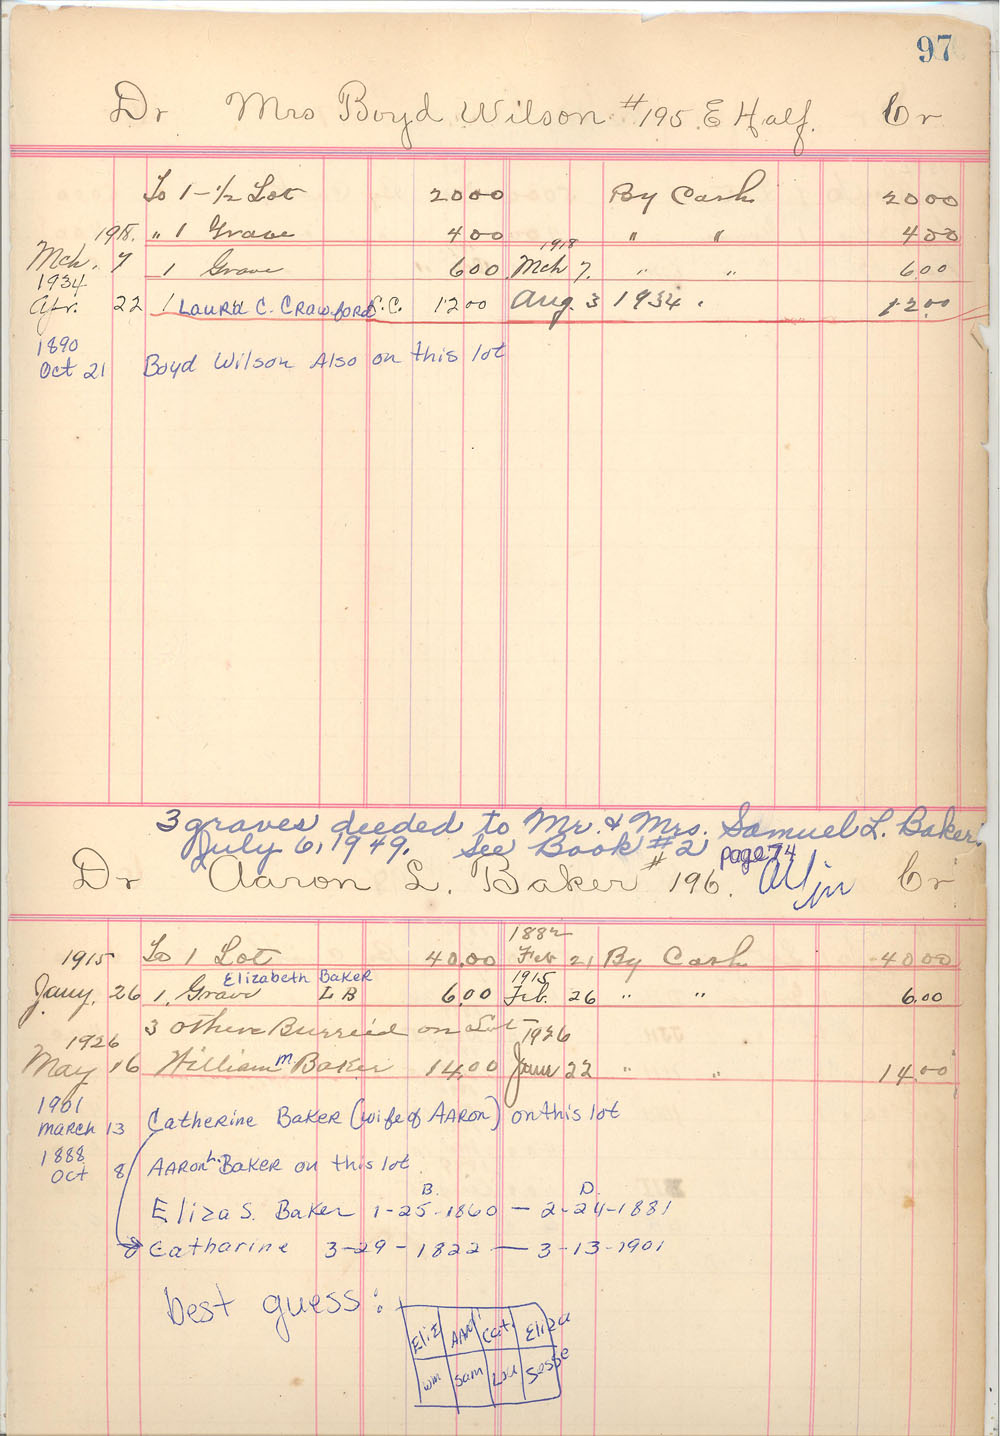 97
Dr Mrs Boyd Wilson #195 E Half. Cr
To 1-½ Lot 2000 By Cash 2000
1918. " 1 Grave 400 " " 400
Mch. 7 1 Grave 600 1918 Mch 7. " " 600
1934
Apr. 22 1 Laura C. Crawford S.C. 1200 Aug. 3 1934 . 12.00
1890
Oct 21 Boyd Wilson Also on this lot
3 graves deeded to Mr. & Mrs. Samuel L. Baker.
July 6, 1949. See Book #2 page 74
Dr Aaron L. Baker #196. Cr
1882
1915 To 1 Lot 40.00 Feb 21 By Cash 4000
Elizabeth Baker 1915
Jany. 26 1 Grave L B 600 Feb. 26 " " 6.00
3 others Burried on Lot 1926
1926
May 16 William M Baker 14.00 June 22 " " 14.00
1901
March 13 Catherine Baker (wife of Aaron) on this lot
1888
Oct 8 Aaron L. Baker on this lot
B. D.
Eliza S. Baker 1-25-1860 — 2-24-1881
Catharine 3-29-1822 — 3-13-1901
best guess:
Eliz Cat. Eliza
Wm Sam Lou Sesse